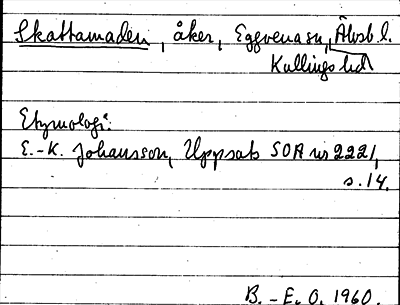 Skattamaden, åker, Eggvena sn, Älvsb. l.
Kullings hd
Etymologi:
E.-K. Johansson, Uppsats SOA nr 2221,
s. 14.
B.-E. O. 1960.